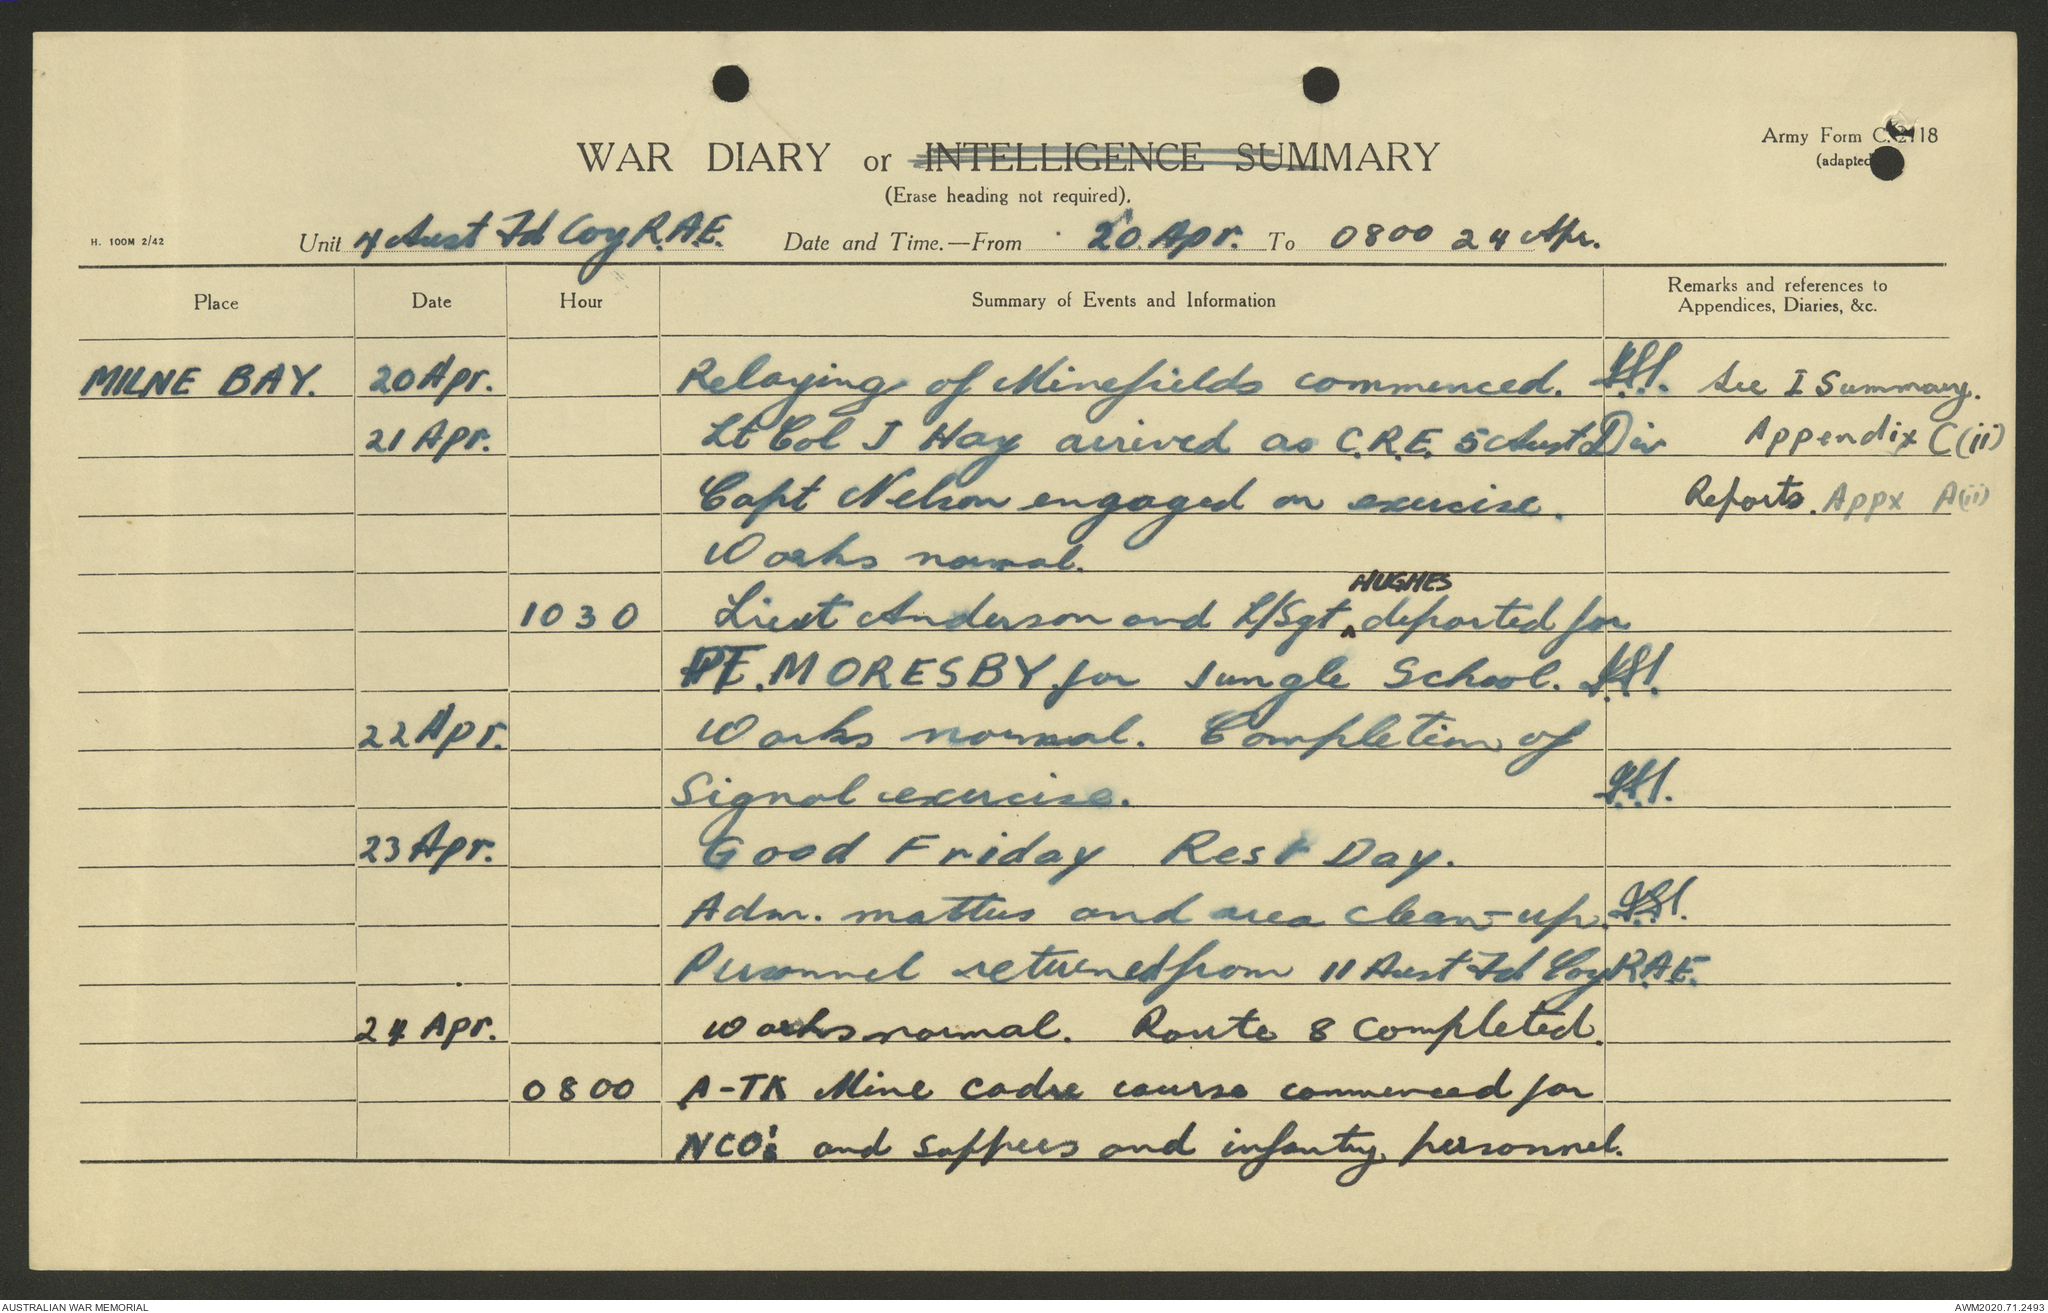 Army Form C.2118
(adapted)
WAR DIARY or INTELLIGENCE SUMMARY
(Erase heading not required).
H. 100M 2/42
Unit 4 Aust Fd Coy R.A.E. Date and Time.—From 20 Apr. To 0800 24 Apr.
Place Date Hour Summary of Events and Information Remarks and references to
Appendices, Diaries, &c.
MILNE BAY. 20 Apr. Relaying of Minefields commenced. See I Summary.
21 Apr. Lt Col J Hay arrived as C.R.E. 5 Aust Div Appendix C(ii)
Capt Nelson engaged on exercise. Reports. Appx A(ii)
Works normal.
HUGHES
1030 Lieut Anderson and L/Sgt ^ departed for
PT. MORESBY for Jungle School.
22 Apr. Works normal. Completion of
Signal exercise.
23 Apr. Good Friday Rest Day.
Adm. matters and area clean-up.
Personnel returned from 11 Aust Fd Coy R.A.E.
24 Apr. Works normal. Route 8 completed.
0800 A-TK Mine cadre course commenced for
NCO's and sappers and infantry personnel.
AUSTRALIAN WAR MEMORIAL AWM2020.71.2493